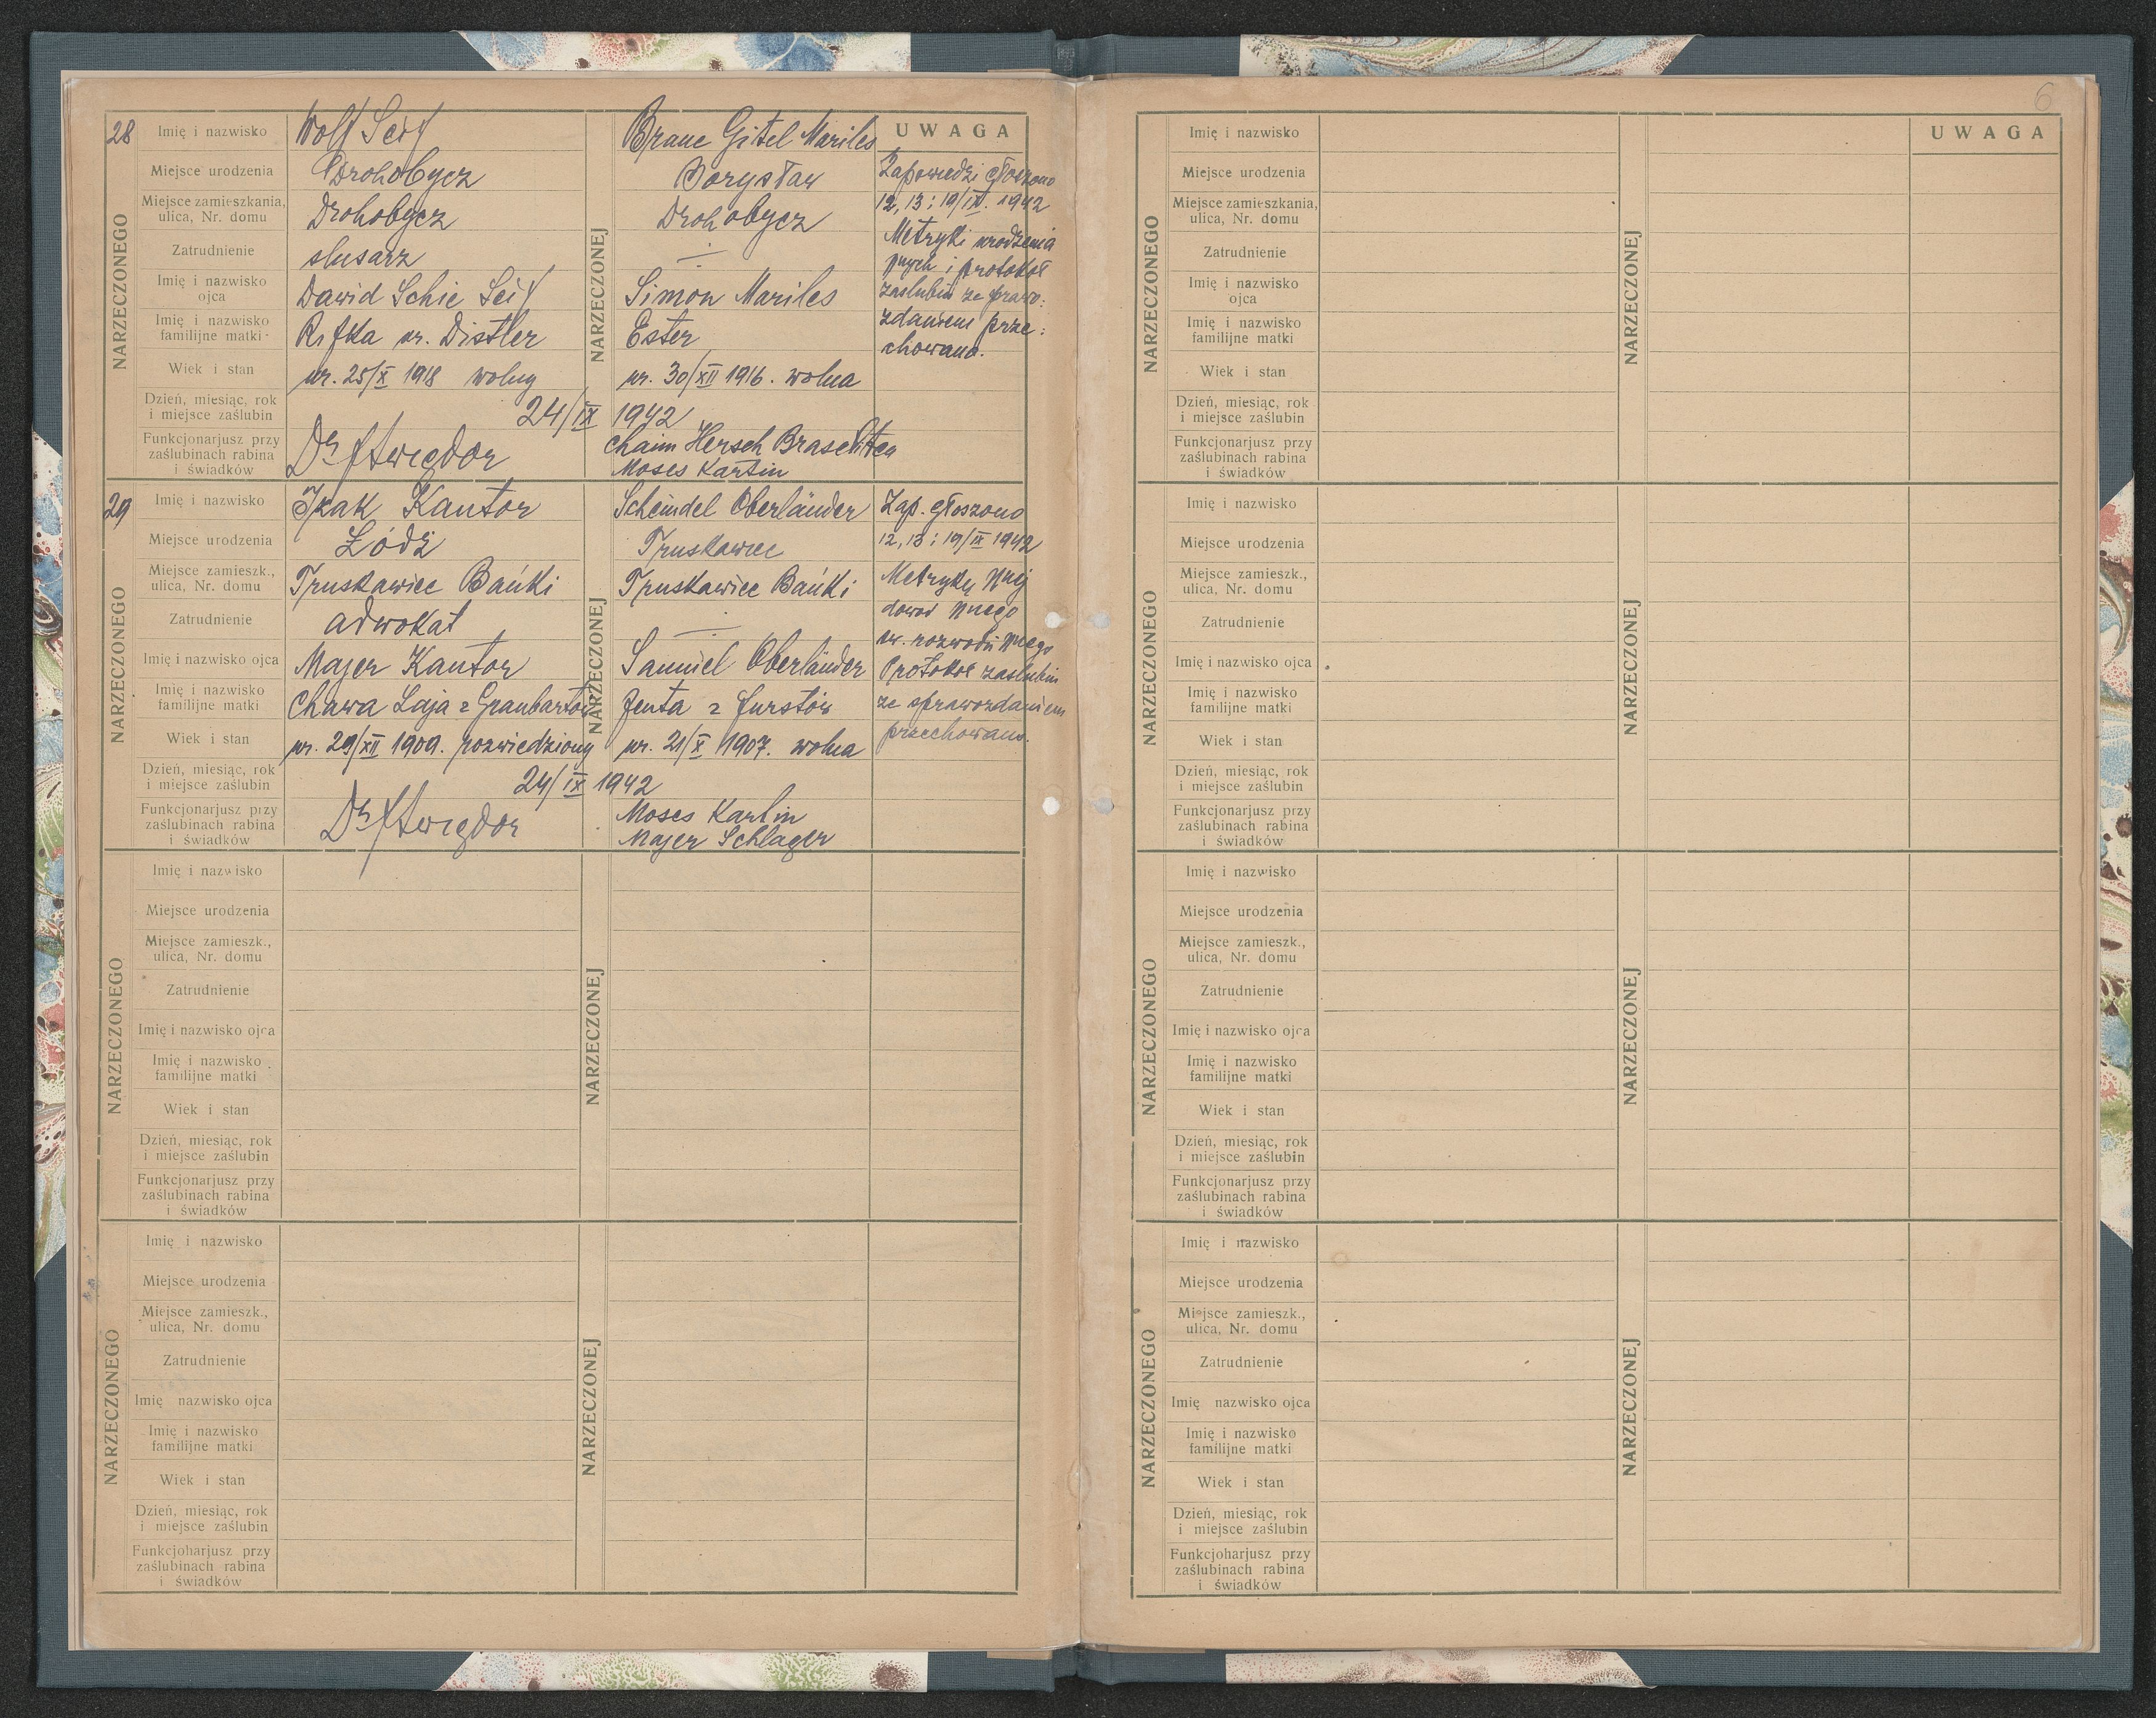 28
NARZECZONEGO
Imię i nazwisko
Wolf Seif
Miejsce urodzenia
Drohobycz
Miejsce zamieszkania,
ulica, Nr. domu
Drohobycz
Zatrudnienie
slusarz
Imię i nazwisko
ojca
Dawid Schie Seif
Imię i nazwisko
familijne matki
Rifka ur. Distler
Wiek i stan
ur. 25/X 1918 wolny
Dzień, miesiąc, rok
i miejsce zaślubin
24/IX 1942
Funkcjonarjusz przy
zaślubinach rabina
i świadków
Dr Awigdor
NARZECZONEJ
Brane Gitel Mariles
Borysław
Drohobycz
Simon Mariles
Ester
ur. 30/XII 1916. wolna
Chaim Hersch
Moses Karlin
UWAGA
Zapowiedzi głoszono
12, 13 i 19/IX. 1942
Metryki urodzenia
i protokół
zaslubin ze prawo:
zdaniem prze:
chowano.
29
NARZECZONEGO
Imię i nazwisko
Izak Kantor
Miejsce urodzenia
Łódź
Miejsce zamieszk.,
ulica, Nr. domu
Truskawiec Bańki
Zatrudnienie
adwokat
Imię i nazwisko ojca
Majer Kantor
Imię i nazwisko
familijne matki
Chawa Laja z Graubartów
Wiek i stan
ur. 29/XII 1909. rozwiedziony
Dzień, miesiąc, rok
i miejsce zaślubin
24/IX 1942
Funkcjonarjusz przy
zaślubinach rabina
i świadków
Dr Awigdor
NARZECZONEJ
Scheindel Oberländer
Truskawiec
Truskawiec Bańki
Samuel Oberländer
Jenta z Furstów
ur. 21/X 1907. wolna
Moses Karlin
Majer Schlager
Zap. głoszono
12, 13 i 19/IX 1942
Metrykę
dowod
rozwodu
Protokół zaslubin
ze sprawozdaniem
przechowano.
NARZECZONEGO
Imię i nazwisko
Miejsce urodzenia
Miejsce zamieszk.,
ulica, Nr. domu
Zatrudnienie
Imię i nazwisko ojca
Imię i nazwisko
familijne matki
Wiek i stan
Dzień, miesiąc, rok
i miejsce zaślubin
Funkcjonarjusz przy
zaślubinach rabina
i świadków
NARZECZONEJ
NARZECZONEGO
Imię i nazwisko
Miejsce urodzenia
Miejsce zamieszk.,
ulica, Nr. domu
Zatrudnienie
Imię nazwisko ojca
Imię i nazwisko
familijne matki
Wiek i stan
Dzień, miesiąc, rok
i miejsce zaślubin
Funkcjoharjusz przy
zaślubinach rabina
i świadków
NARZECZONEJ
6
NARZECZONEGO
Imię i nazwisko
Miejsce urodzenia
Miejsce zamieszkania,
ulica, Nr. domu
Zatrudnienie
Imię i nazwisko
ojca
Imię i nazwisko
familijne matki
Wiek i stan
Dzień, miesiąc, rok
i miejsce zaślubin
Funkcjonarjusz przy
zaślubinach rabina
i świadków
NARZECZONEJ
UWAGA
NARZECZONEGO
Imię i nazwisko
Miejsce urodzenia
Miejsce zamieszk.,
ulica, Nr. domu
Zatrudnienie
Imię i nazwisko ojca
Imię i nazwisko
familijne matki
Wiek i stan
Dzień, miesiąc, rok
i miejsce zaślubin
Funkcjonarjusz przy
zaślubinach rabina
i świadków
NARZECZONEJ
NARZECZONEGO
Imię i nazwisko
Miejsce urodzenia
Miejsce zamieszk.,
ulica, Nr. domu
Zatrudnienie
Imię i nazwisko ojca
Imię i nazwisko
familijne matki
Wiek i stan
Dzień, miesiąc, rok
i miejsce zaślubin
Funkcjonarjusz przy
zaślubinach rabina
i świadków
NARZECZONEJ
NARZECZONEGO
Imię i nazwisko
Miejsce urodzenia
Miejsce zamieszk.,
ulica, Nr. domu
Zatrudnienie
Imię nazwisko ojca
Imię i nazwisko
familijne matki
Wiek i stan
Dzień, miesiąc, rok
i miejsce zaślubin
Funkcjoharjusz przy
zaślubinach rabina
i świadków
NARZECZONEJ